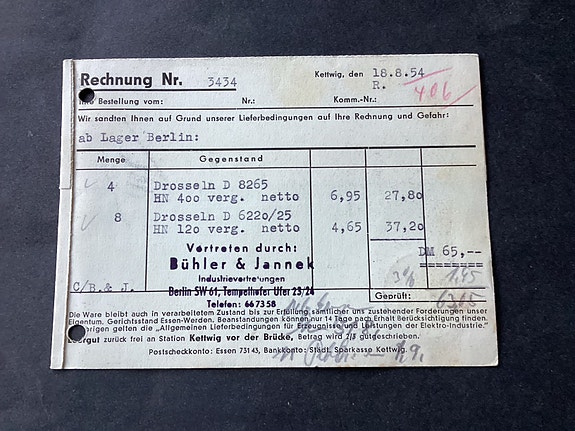 Rechnung Nr. 3434 Kettwig, den 18.8.54
R. 406
Ihre Bestellung vom: Nr.: Komm.-Nr.:
Wir sandten Ihnen auf Grund unserer Lieferbedingungen auf Ihre Rechnung und Gefahr:
ab Lager Berlin:
Menge Gegenstand
4 Drosseln D 8265
HN 4oo verg. netto 6,95 27,8o
8 Drosseln D 622o/25
HN 12o verg. netto 4,65 37,2o
DM 65,--
Vertreten durch:
Bühler & Jannek
Industrievertretungen
Berlin SW 61, Tempelhofer Ufer 23/24
Telefon: 667358
3% 1.95
C/B.& J. Geprüft: 63.05
Die Ware bleibt auch in verarbeitetem Zustand bis zur Erfüllung sämtlicher uns zustehender Forderungen unser
Eigentum. Gerichtsstand Essen-Werden. Beanstandungen können nur 14 Tage nach Erhalt Berücksichtigung finden.
Im übrigen gelten die „Allgemeinen Lieferbedingungen für Erzeugnisse und Leistungen der Elektro-Industrie."
Leergut zurück frei an Station Kettwig vor der Brücke, Betrag wird 2/3 gutgeschrieben.
Postscheckkonto: Essen 73143, Bankkonto: Städt. Sparkasse Kettwig.
1.9.